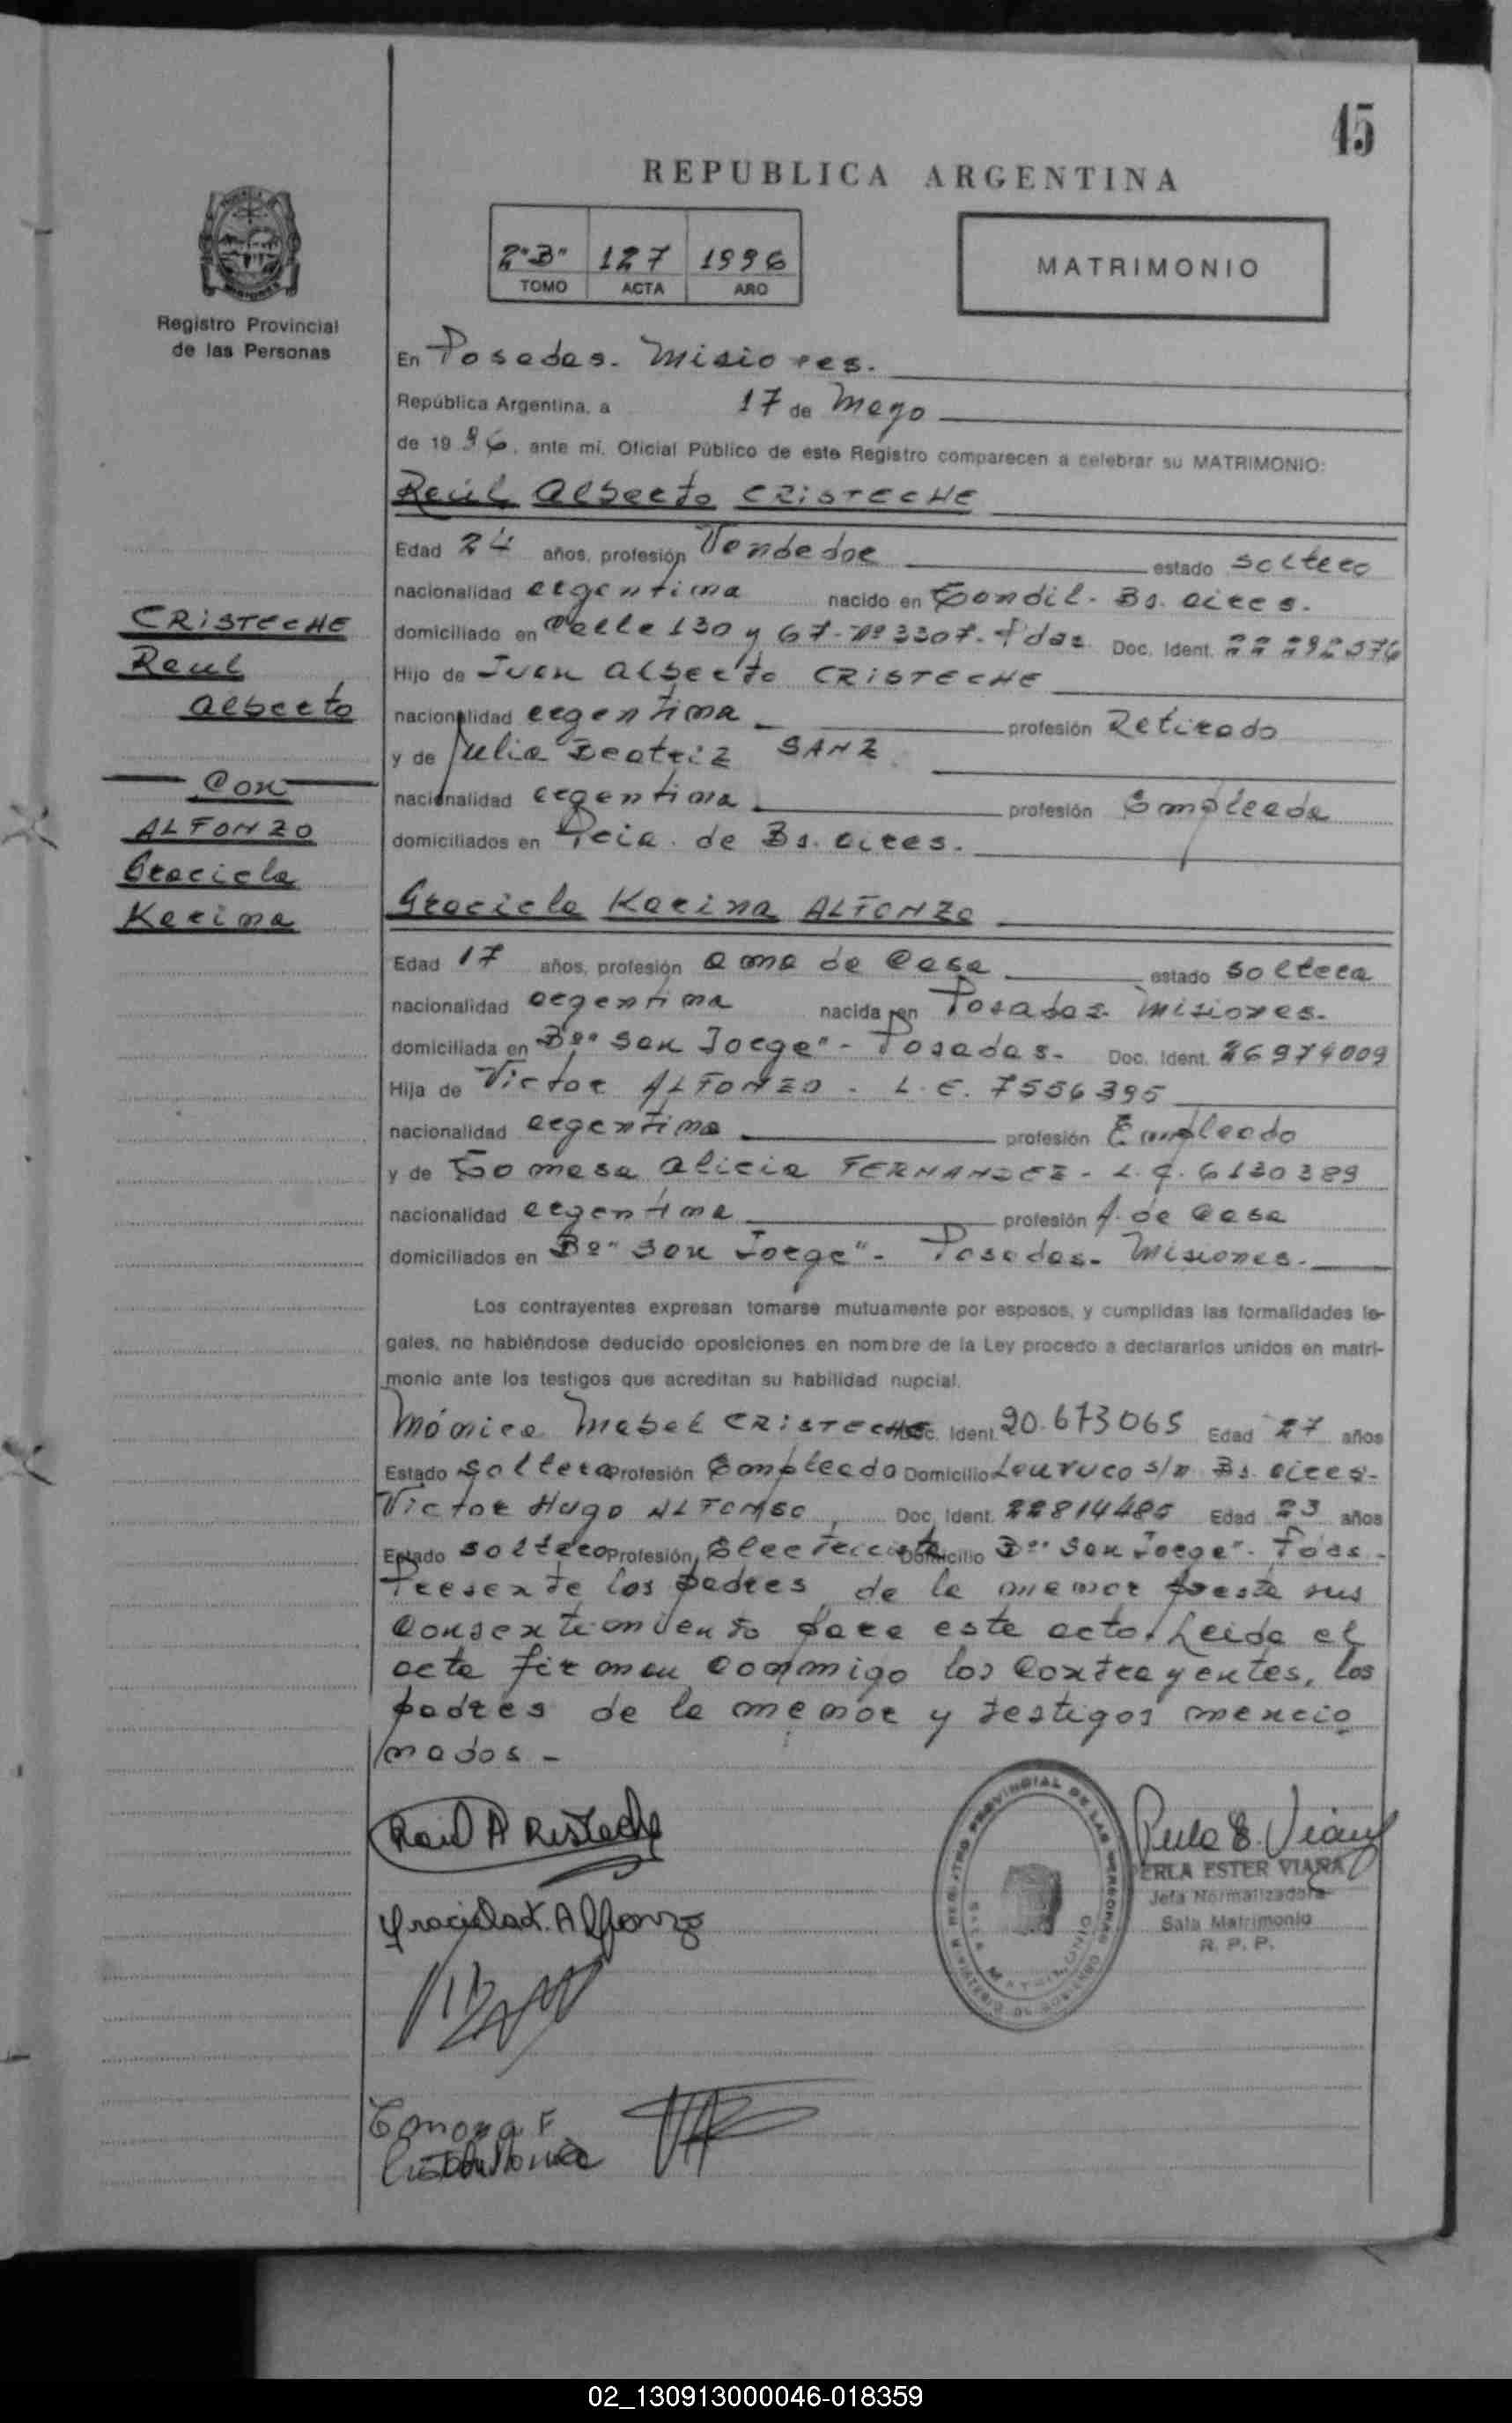 45
REPUBLICA ARGENTINA
2"B" 127 1996
TOMO ACTA AÑO
MATRIMONIO
Registro Provincial
de las Personas
En Posadas. Misiones.
República Argentina, a 17 de Mayo
de 1996, ante mí, Oficial Público de este Registro comparecen a celebrar su MATRIMONIO:
Raúl Alberto CRISTECHE
Edad 24 años, profesión Vendedor estado soltero
nacionalidad argentina nacido en Tandil. Bs. Aires.
domiciliado en Calle 130 y 67-Nº 3307-Pdas Doc. Ident.
Hijo de Juan Alberto CRISTECHE
nacionalidad argentina profesión Retirado
y de Julia Beatriz SANZ
nacionalidad argentina profesión Empleada
domiciliados en Pcia. de Bs. Aires.
CRISTECHE
Raul
Alberto
Con
ALFONZO
Graciela
Karina
Graciela Karina ALFONZO
Edad 17 años, profesión Ama de Casa estado soltera
nacionalidad argentina nacida en Posadas. Misiones.
domiciliada en Bº "San Jorge"- Posadas- Doc. Ident. 26974009
Hija de Victor ALFONZO - L.E. 7556395
nacionalidad argentina profesión Empleado
y de Tomasa Alicia FERNANDEZ - L.C. 6130389
nacionalidad argentina profesión A. de Casa
domiciliados en Bº "San Jorge"- Posadas- Misiones.
Los contrayentes expresan tomarse mutuamente por esposos, y cumplidas las formalidades le-
gales, no habiéndose deducido oposiciones en nombre de la Ley procedo a declararlos unidos en matri-
monio ante los testigos que acreditan su habilidad nupcial.
Mónica Mabel CRISTECHE Doc. Ident. 20.673065 Edad 27 años
Estado soltera Profesión Empleada Domicilio s/n Bs. Aires-
Victor Hugo ALFONSO Doc. Ident. 22814485 Edad 23 años
Estado soltero Profesión Electricista Domicilio Bº "San Jorge"- Pdas-
Presente los padres de la menor presta sus
Consentimiento para este acto. Leida el
acta firman conmigo los Contrayentes, los
padres de la menor y testigos mencio
nados-
Graciela K. Alfonzo
REGISTRO PROVINCIAL DE LAS PERSONAS
MINISTERIO DE GOBIERNO
SALA MATRIMONIO
PERLA ESTER VIANA
Jefa Normalizadora
Sala Matrimonio
R. P. P.
02_130913000046-018359